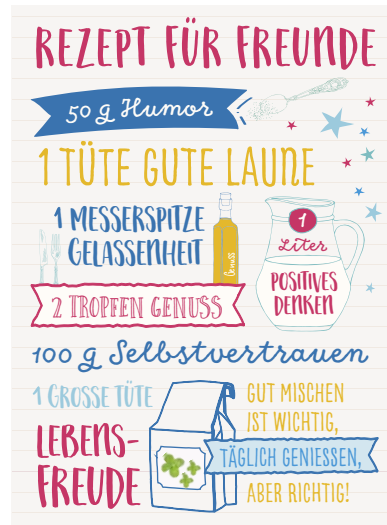 REZEPT FÜR FREUNDE
50 g Humor
1 TÜTE GUTE LAUNE
1 MESSERSPITZE
GELASSENHEIT
Genuss
1
Liter
POSITIVES
DENKEN
2 TROPFEN GENUSS
100 g Selbstvertrauen
1 GROSSE TÜTE
LEBENS-
FREUDE
GUT MISCHEN
IST WICHTIG,
TÄGLICH GENIESSEN,
ABER RICHTIG!